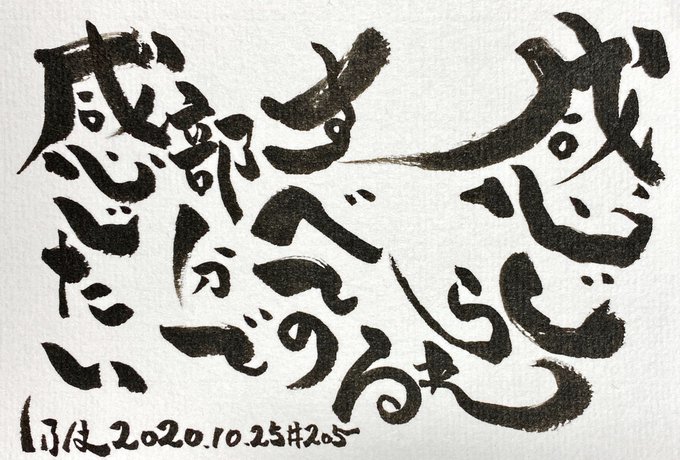 感じ
られる
すべての
部分で
感じたい
2020.10.25#205